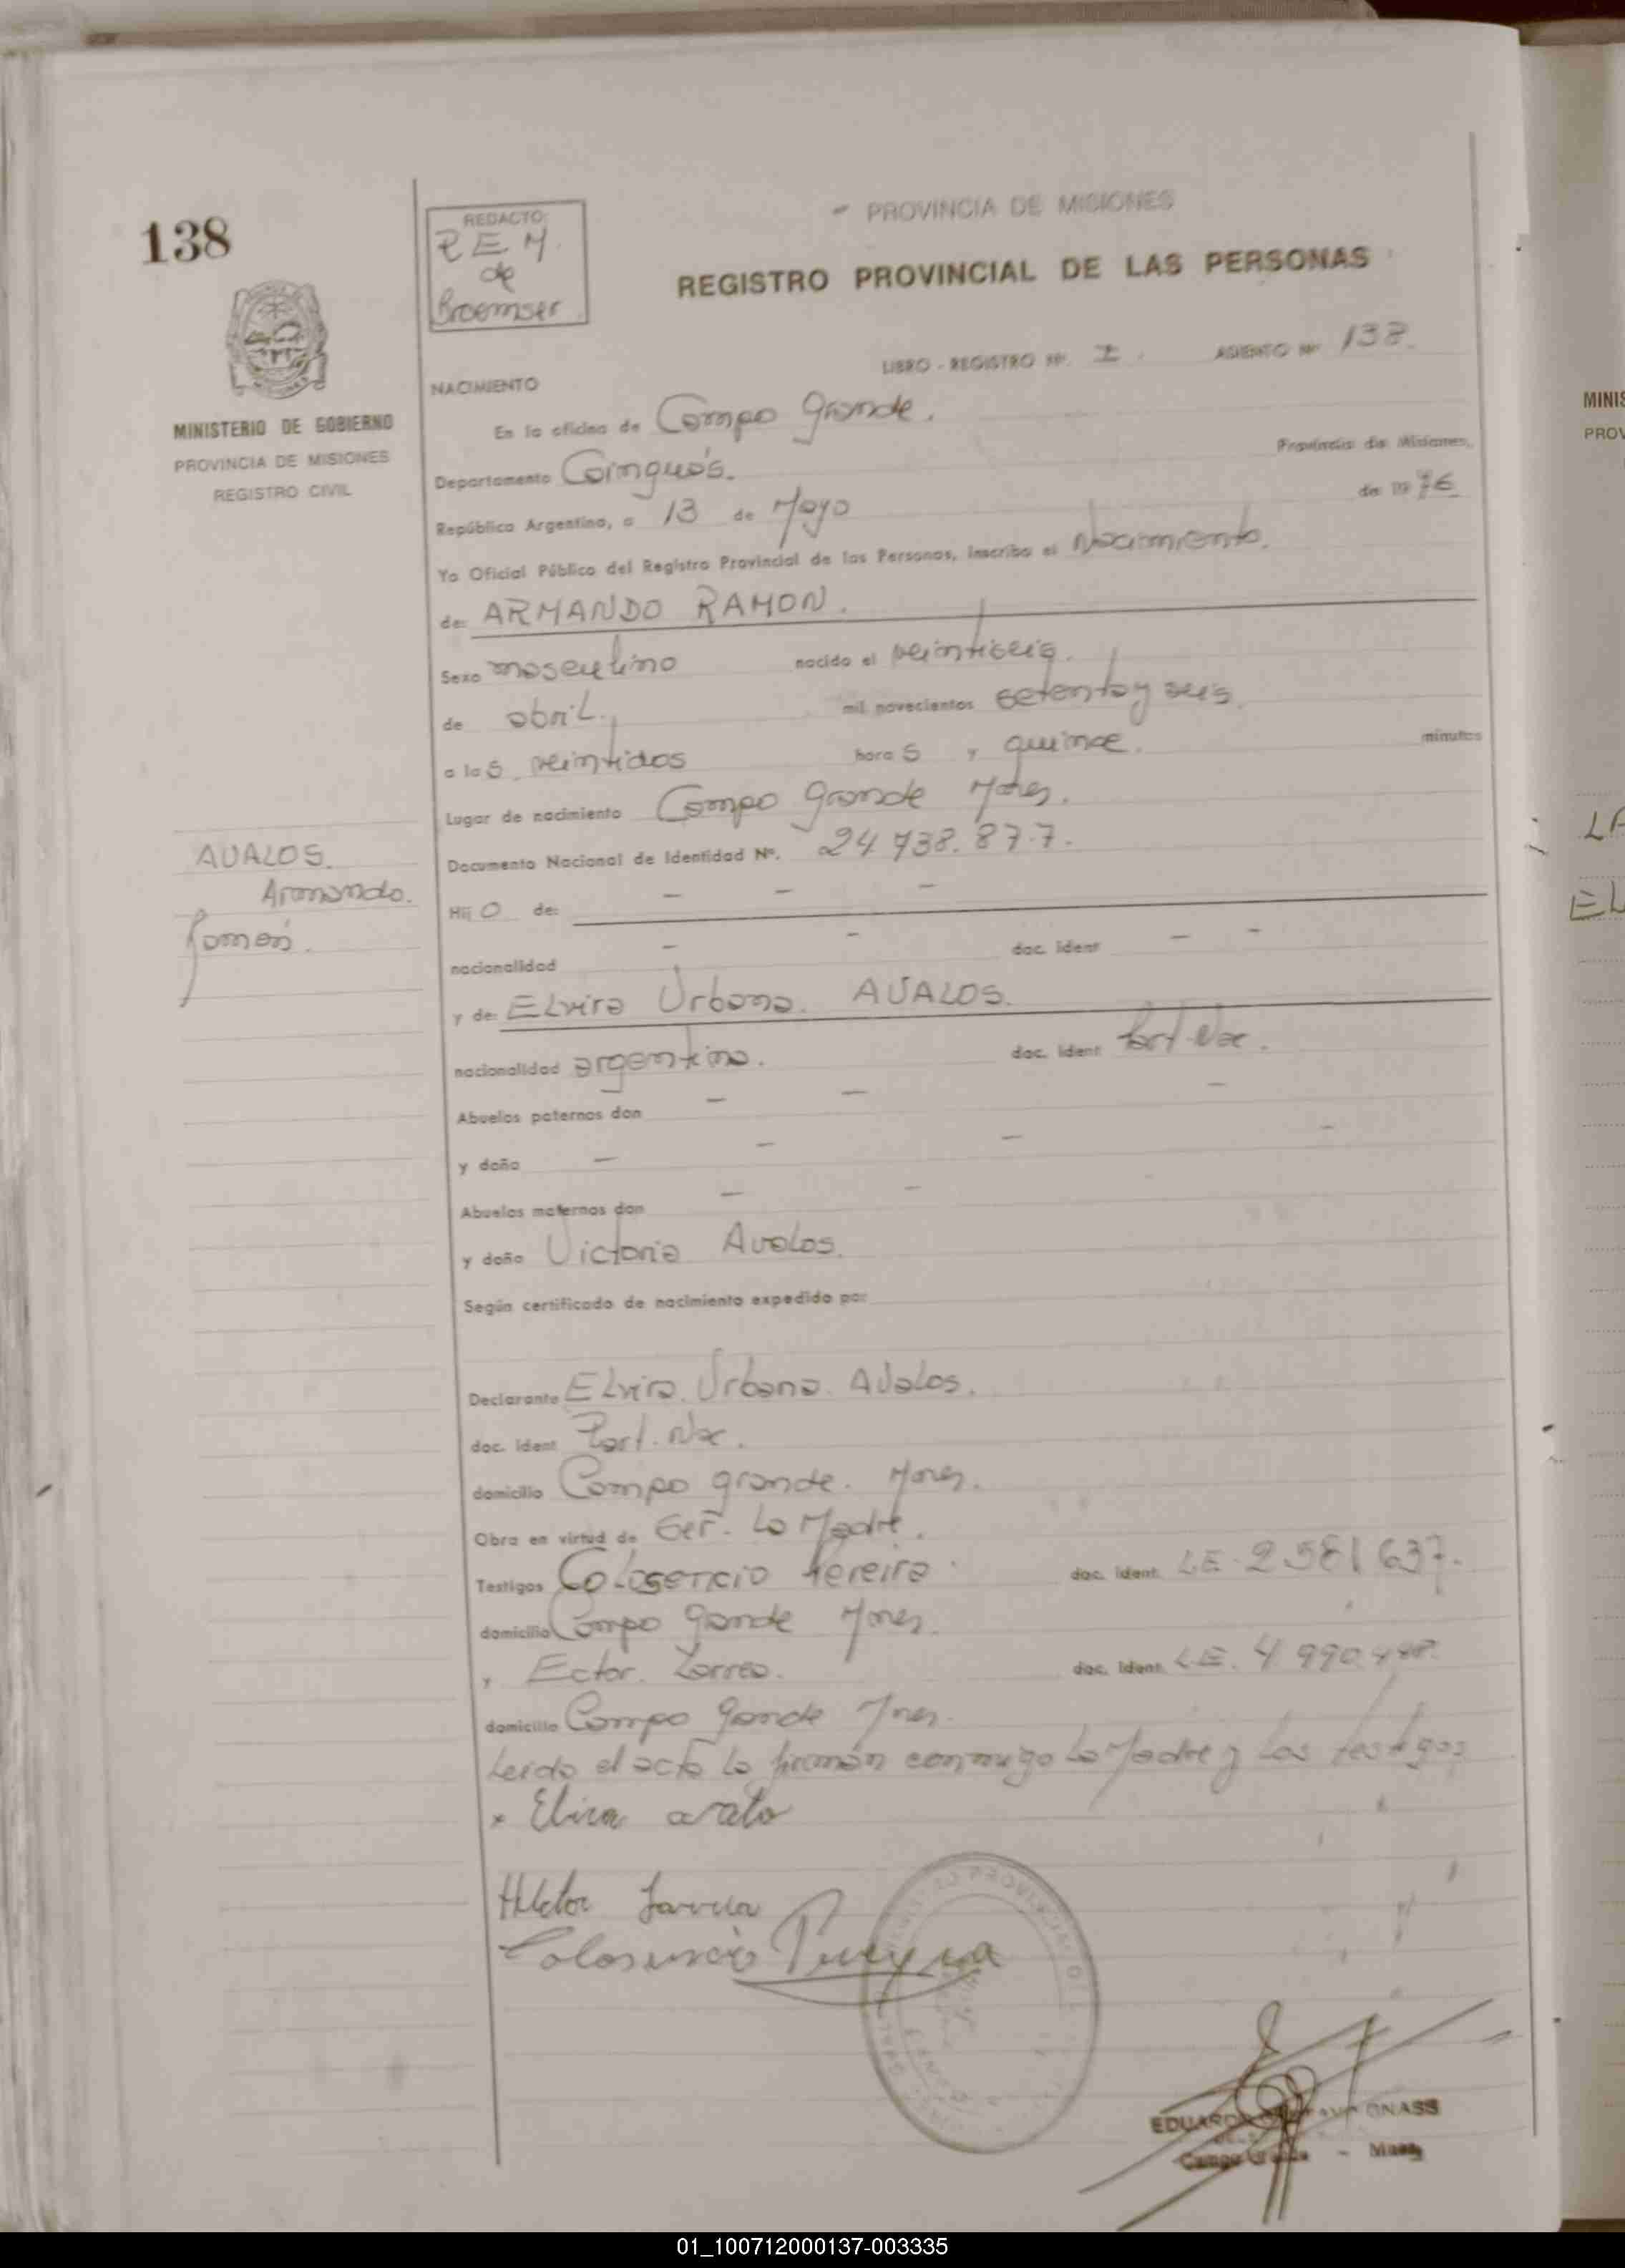 138
REDACTO:
R E M.
de
Broemser
- PROVINCIA DE MISIONES
REGISTRO PROVINCIAL DE LAS PERSONAS
LIBRO - REGISTRO Nº. I. ASIENTO Nº 138.
NACIMIENTO
MINISTERIO DE GOBIERNO
PROVINCIA DE MISIONES
REGISTRO CIVIL
En la oficina de Campo Grande.
Departamento Cainguás. Provincia de Misiones,
República Argentina, a 13 de Mayo de 1976
Yo Oficial Público del Registro Provincial de las Personas, inscribo el Nacimiento.
de: ARMANDO RAMON.
Sexo masculino nacido el veintiseis.
de abril. mil novecientos setenta y seis.
a las veintidos horas y quince. minutos
Lugar de nacimiento Campo Grande Mnes.
Documento Nacional de Identidad Nº. 24 738.877.
AVALOS.
Armando.
Ramón.
Hijo de: - - -
nacionalidad - - doc. ident - -
y de: Elvira Urbana. AVALOS.
nacionalidad argentina. doc. ident Part. Nac.
Abuelos paternos don - - -
y doña - - - -
Abuelos maternos don - -
y doña Victoria Avalos.
Según certificado de nacimiento expedido por
Declarante Elvira Urbana Avalos.
doc. ident Part. Nac.
domicilio Campo grande. Mnes.
Obra en virtud de Ser. La Madre.
Testigos Colosencio Pereira doc. ident. LE. 2 581 637.
domicilio Campo Grande Mnes.
y Ector. Larrea. doc. ident. L.E. 4 990
domicilio Campo Grande Mnes.
Leida el acta la firman conmigo la Madre y los testigos
x Elvira avalo
Larrea
EDUARDO ONASS
Campo Grande - Mnes.
MINIS
PROV
LA
EL
01_100712000137-003335